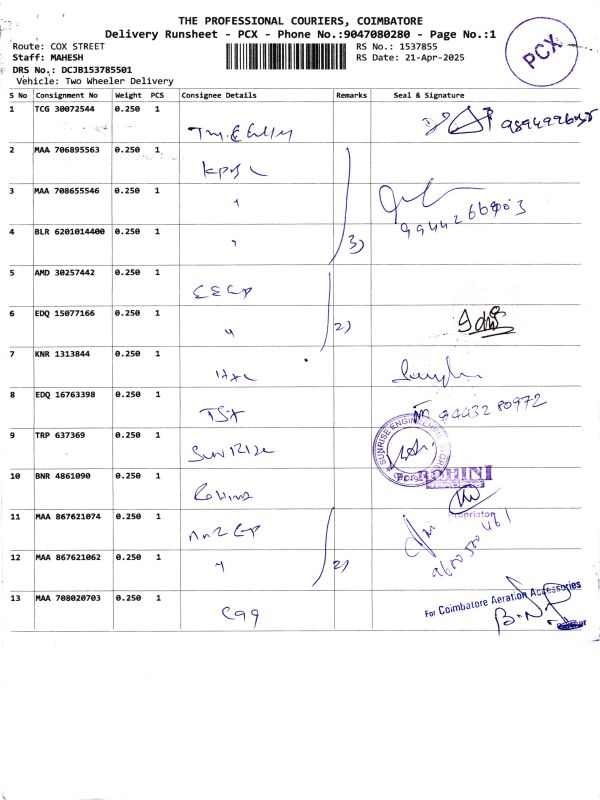 THE PROFESSIONAL COURIERS, COIMBATORE
Delivery Runsheet - PCX - Phone No.:9047080280 - Page No.:1
Route: COX STREET
Staff: MAHESH
DRS No.: DCJB153785501
Vehicle: Two Wheeler Delivery
RS No.: 1537855
RS Date: 21-Apr-2025
PCX
S No Consignment No Weight PCS Consignee Details Remarks Seal & Signature
1 TCG 30072544 0.250 1
2 MAA 706895563 0.250 1
3 MAA 708655546 0.250 1 "
4 BLR 6201014400 0.250 1 " 3)
5 AMD 30257442 0.250 1
6 EDQ 15077166 0.250 1 " 2)
7 KNR 1313844 0.250 1
8 EDQ 16763398 0.250 1 94432 80972
9 TRP 637369 0.250 1 Sunrise
SUNRISE ENGINEERING STORES
10 BNR 4861090 0.250 1 Rohini
ROHINI
Proprietor
11 MAA 867621074 0.250 1
12 MAA 867621062 0.250 1 " 2)
13 MAA 708020703 0.250 1 Caa
For Coimbatore Aeration Accessories